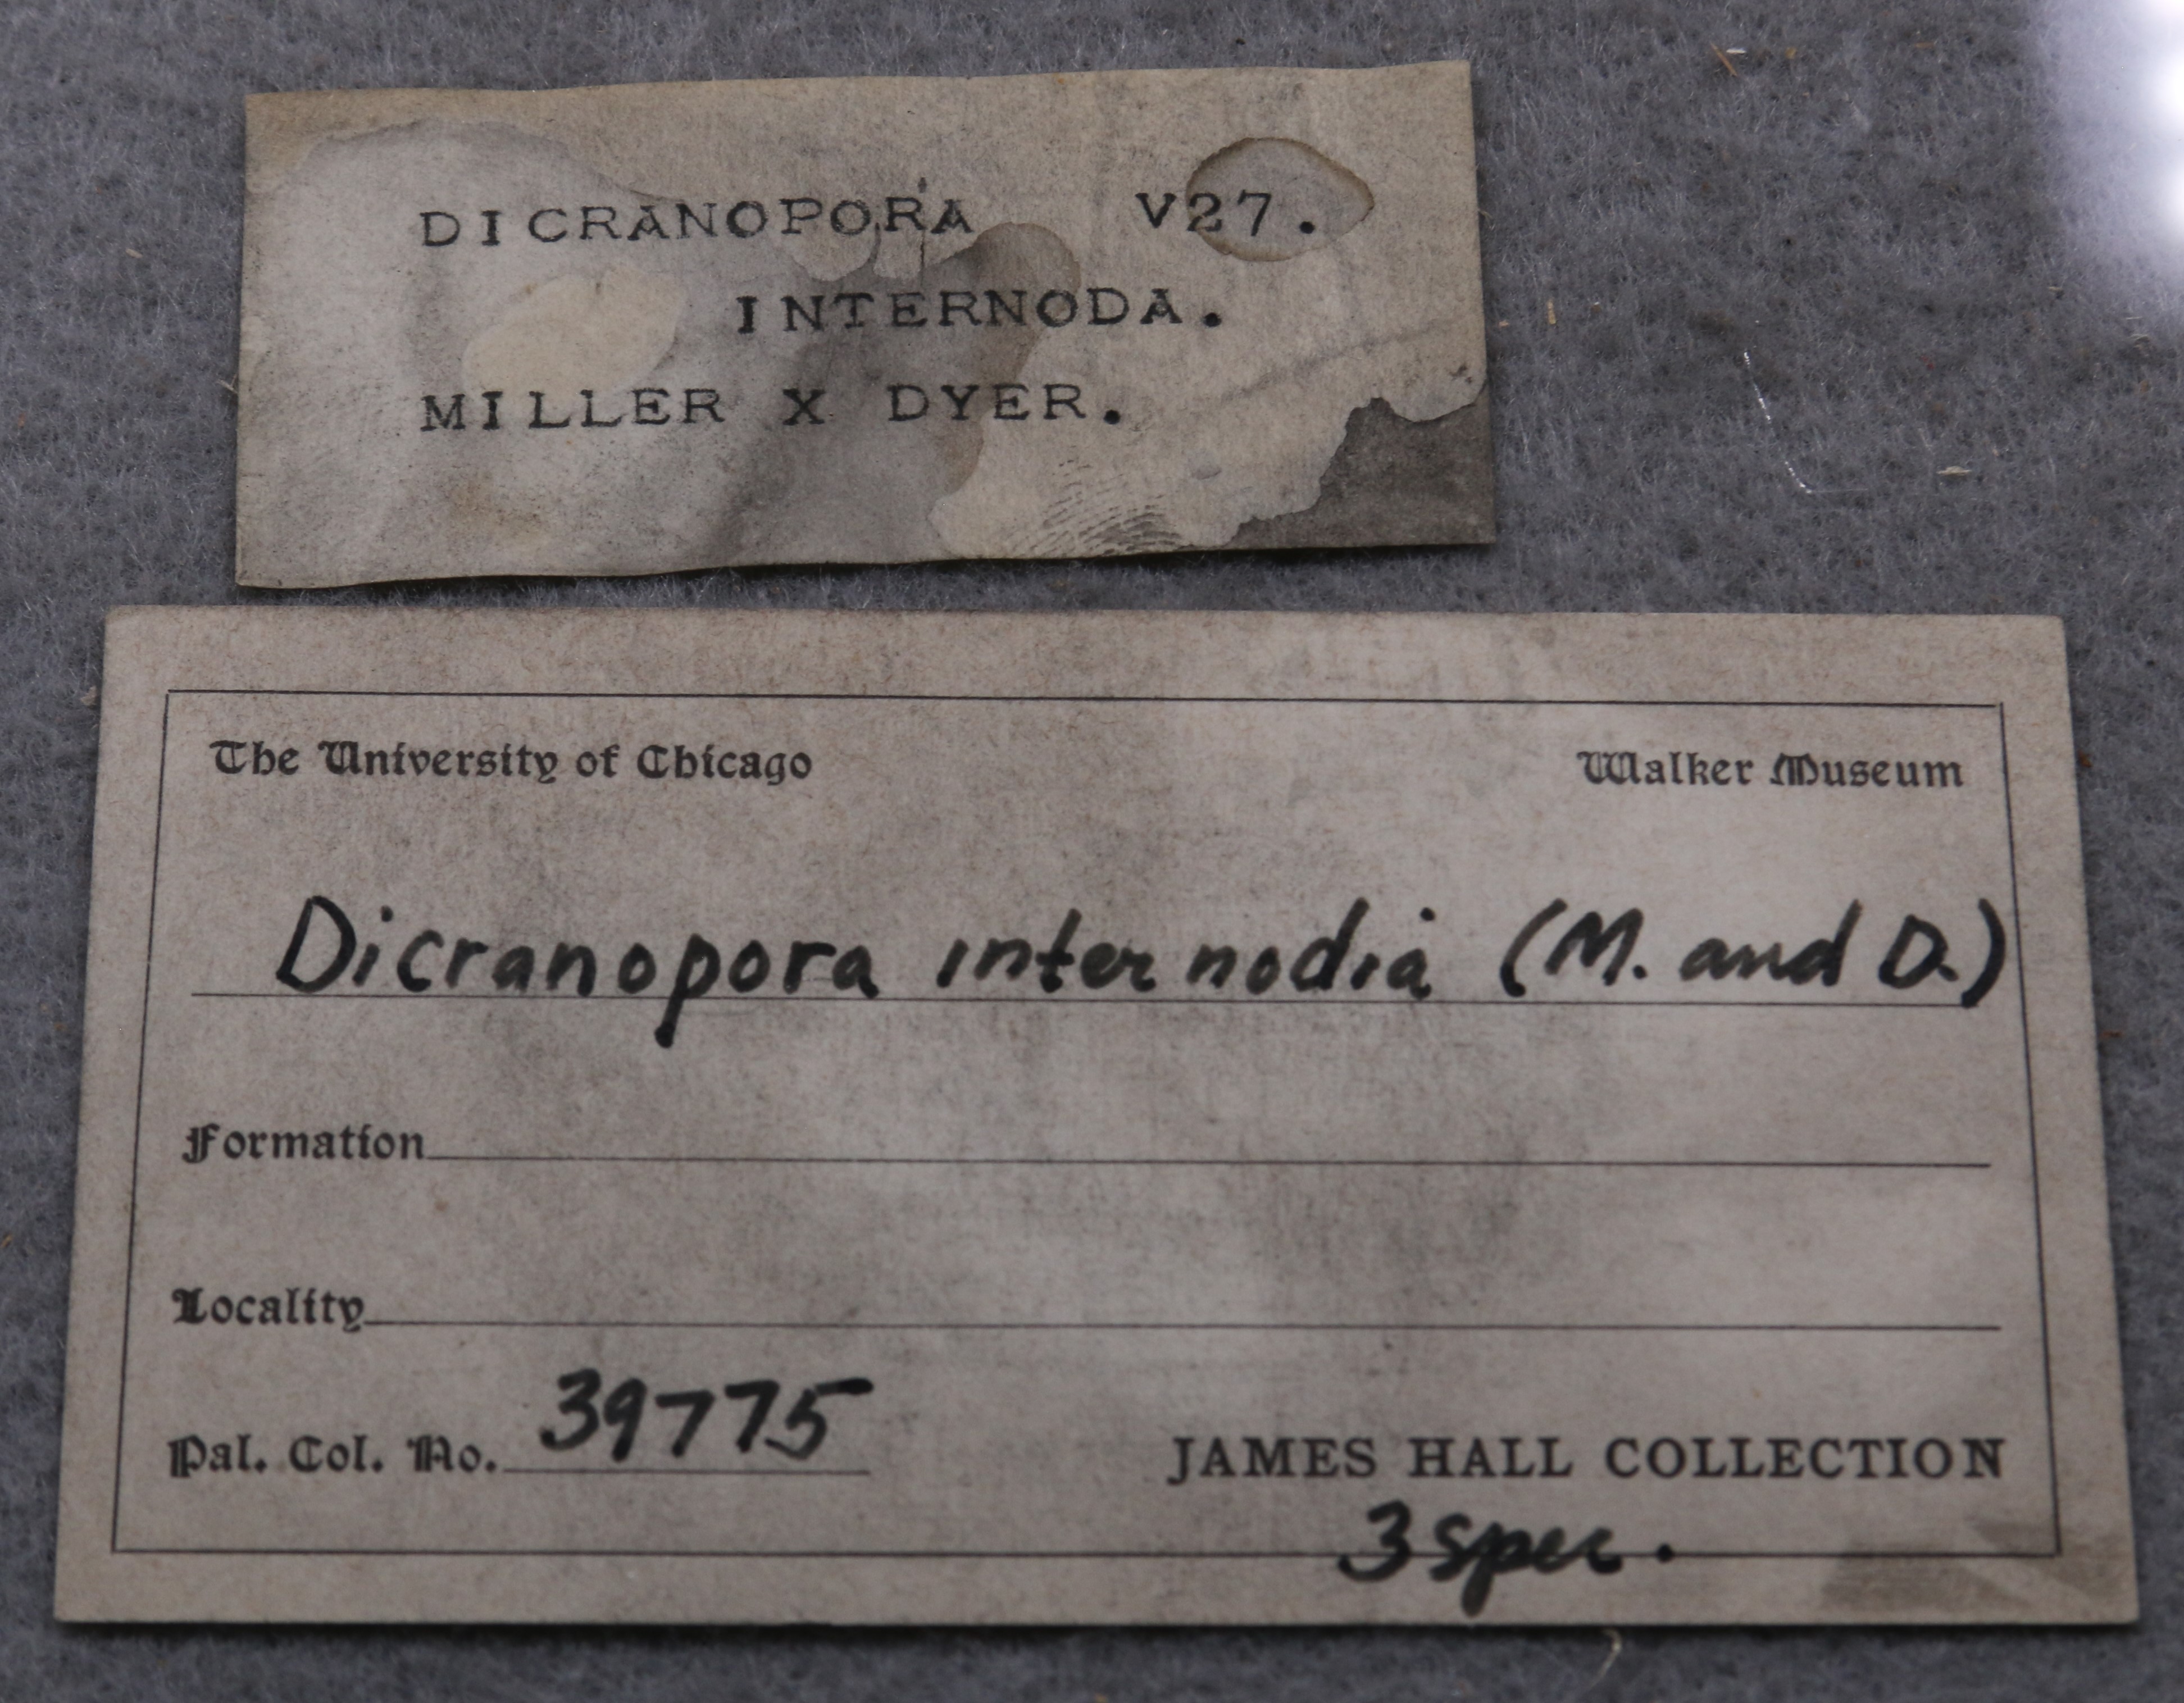 DICRANOPORA V27.
INTERNODA.
MILLER X DYER.
The University of Chicago Walker Museum
Dicranopora internodia (M. and D.)
Formation
Locality
Pal. Col. No. 39775 JAMES HALL COLLECTION
3 spec.